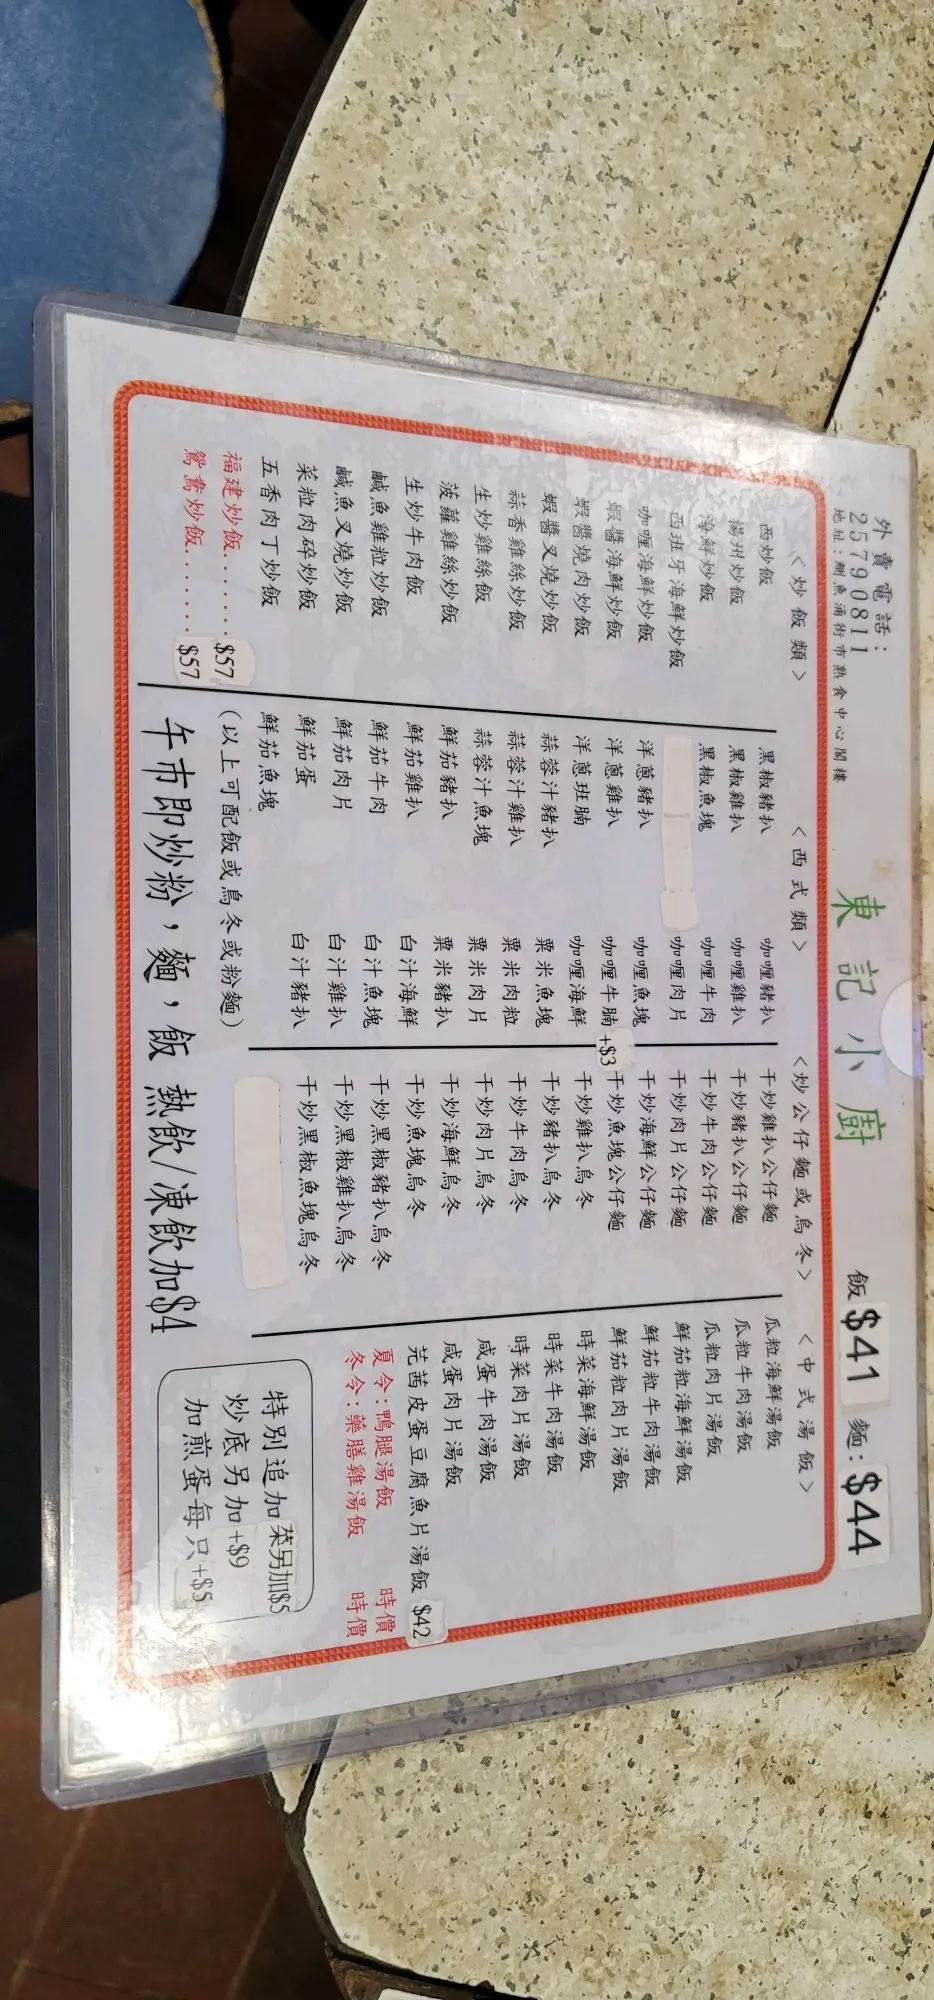 外賣電話：
25790811
地址：鰂魚涌街市熟食中心閣樓
東記小廚
飯$41 麵：$44
＜炒飯類＞
西炒飯
揚州炒飯
海鮮炒飯
西班牙海鮮炒飯
咖喱海鮮炒飯
蝦醬海鮮炒飯
蝦醬燒肉炒飯
蝦醬叉燒炒飯
蒜香雞絲炒飯
生炒雞絲飯
菠蘿雞絲炒飯
生炒牛肉飯
鹹魚雞粒炒飯
鹹魚叉燒炒飯
菜粒肉碎炒飯
五香肉丁炒飯
福建炒飯......$57
鴛鴦炒飯......$57
＜西式類＞
黑椒豬扒
黑椒雞扒
黑椒魚塊
洋蔥豬扒
洋蔥雞扒
洋蔥班腩
蒜蓉汁豬扒
蒜蓉汁雞扒
蒜蓉汁魚塊
鮮茄豬扒
鮮茄雞扒
鮮茄牛肉
鮮茄肉片
鮮茄蛋
鮮茄魚塊
咖喱豬扒
咖喱雞扒
咖喱牛肉
咖喱肉片
咖喱魚塊
咖喱牛腩+$3
咖喱海鮮
粟米魚塊
粟米肉粒
粟米肉片
粟米豬扒
白汁海鮮
白汁魚塊
白汁雞扒
白汁豬扒
（以上可配飯或烏冬或粉麵）
＜炒公仔麵或烏冬＞
干炒雞扒公仔麵
干炒豬扒公仔麵
干炒牛肉公仔麵
干炒肉片公仔麵
干炒海鮮公仔麵
干炒魚塊公仔麵
干炒雞扒烏冬
干炒豬扒烏冬
干炒牛肉烏冬
干炒肉片烏冬
干炒海鮮烏冬
干炒魚塊烏冬
干炒黑椒豬扒烏冬
干炒黑椒雞扒烏冬
干炒黑椒魚塊烏冬
＜中式湯飯＞
瓜粒海鮮湯飯
瓜粒牛肉湯飯
瓜粒肉片湯飯
鮮茄粒海鮮湯飯
鮮茄粒牛肉湯飯
鮮茄粒肉片湯飯
時菜海鮮湯飯
時菜牛肉湯飯
時菜肉片湯飯
咸蛋牛肉湯飯
咸蛋肉片湯飯
芫茜皮蛋豆腐魚片湯飯$42
夏令：鴨腿湯飯 時價
冬令：藥膳雞湯飯 時價
午市即炒粉，麵，飯 熱飲/凍飲加$4
特別追加菜另加$5
炒底另加+$9
加煎蛋每只+$5